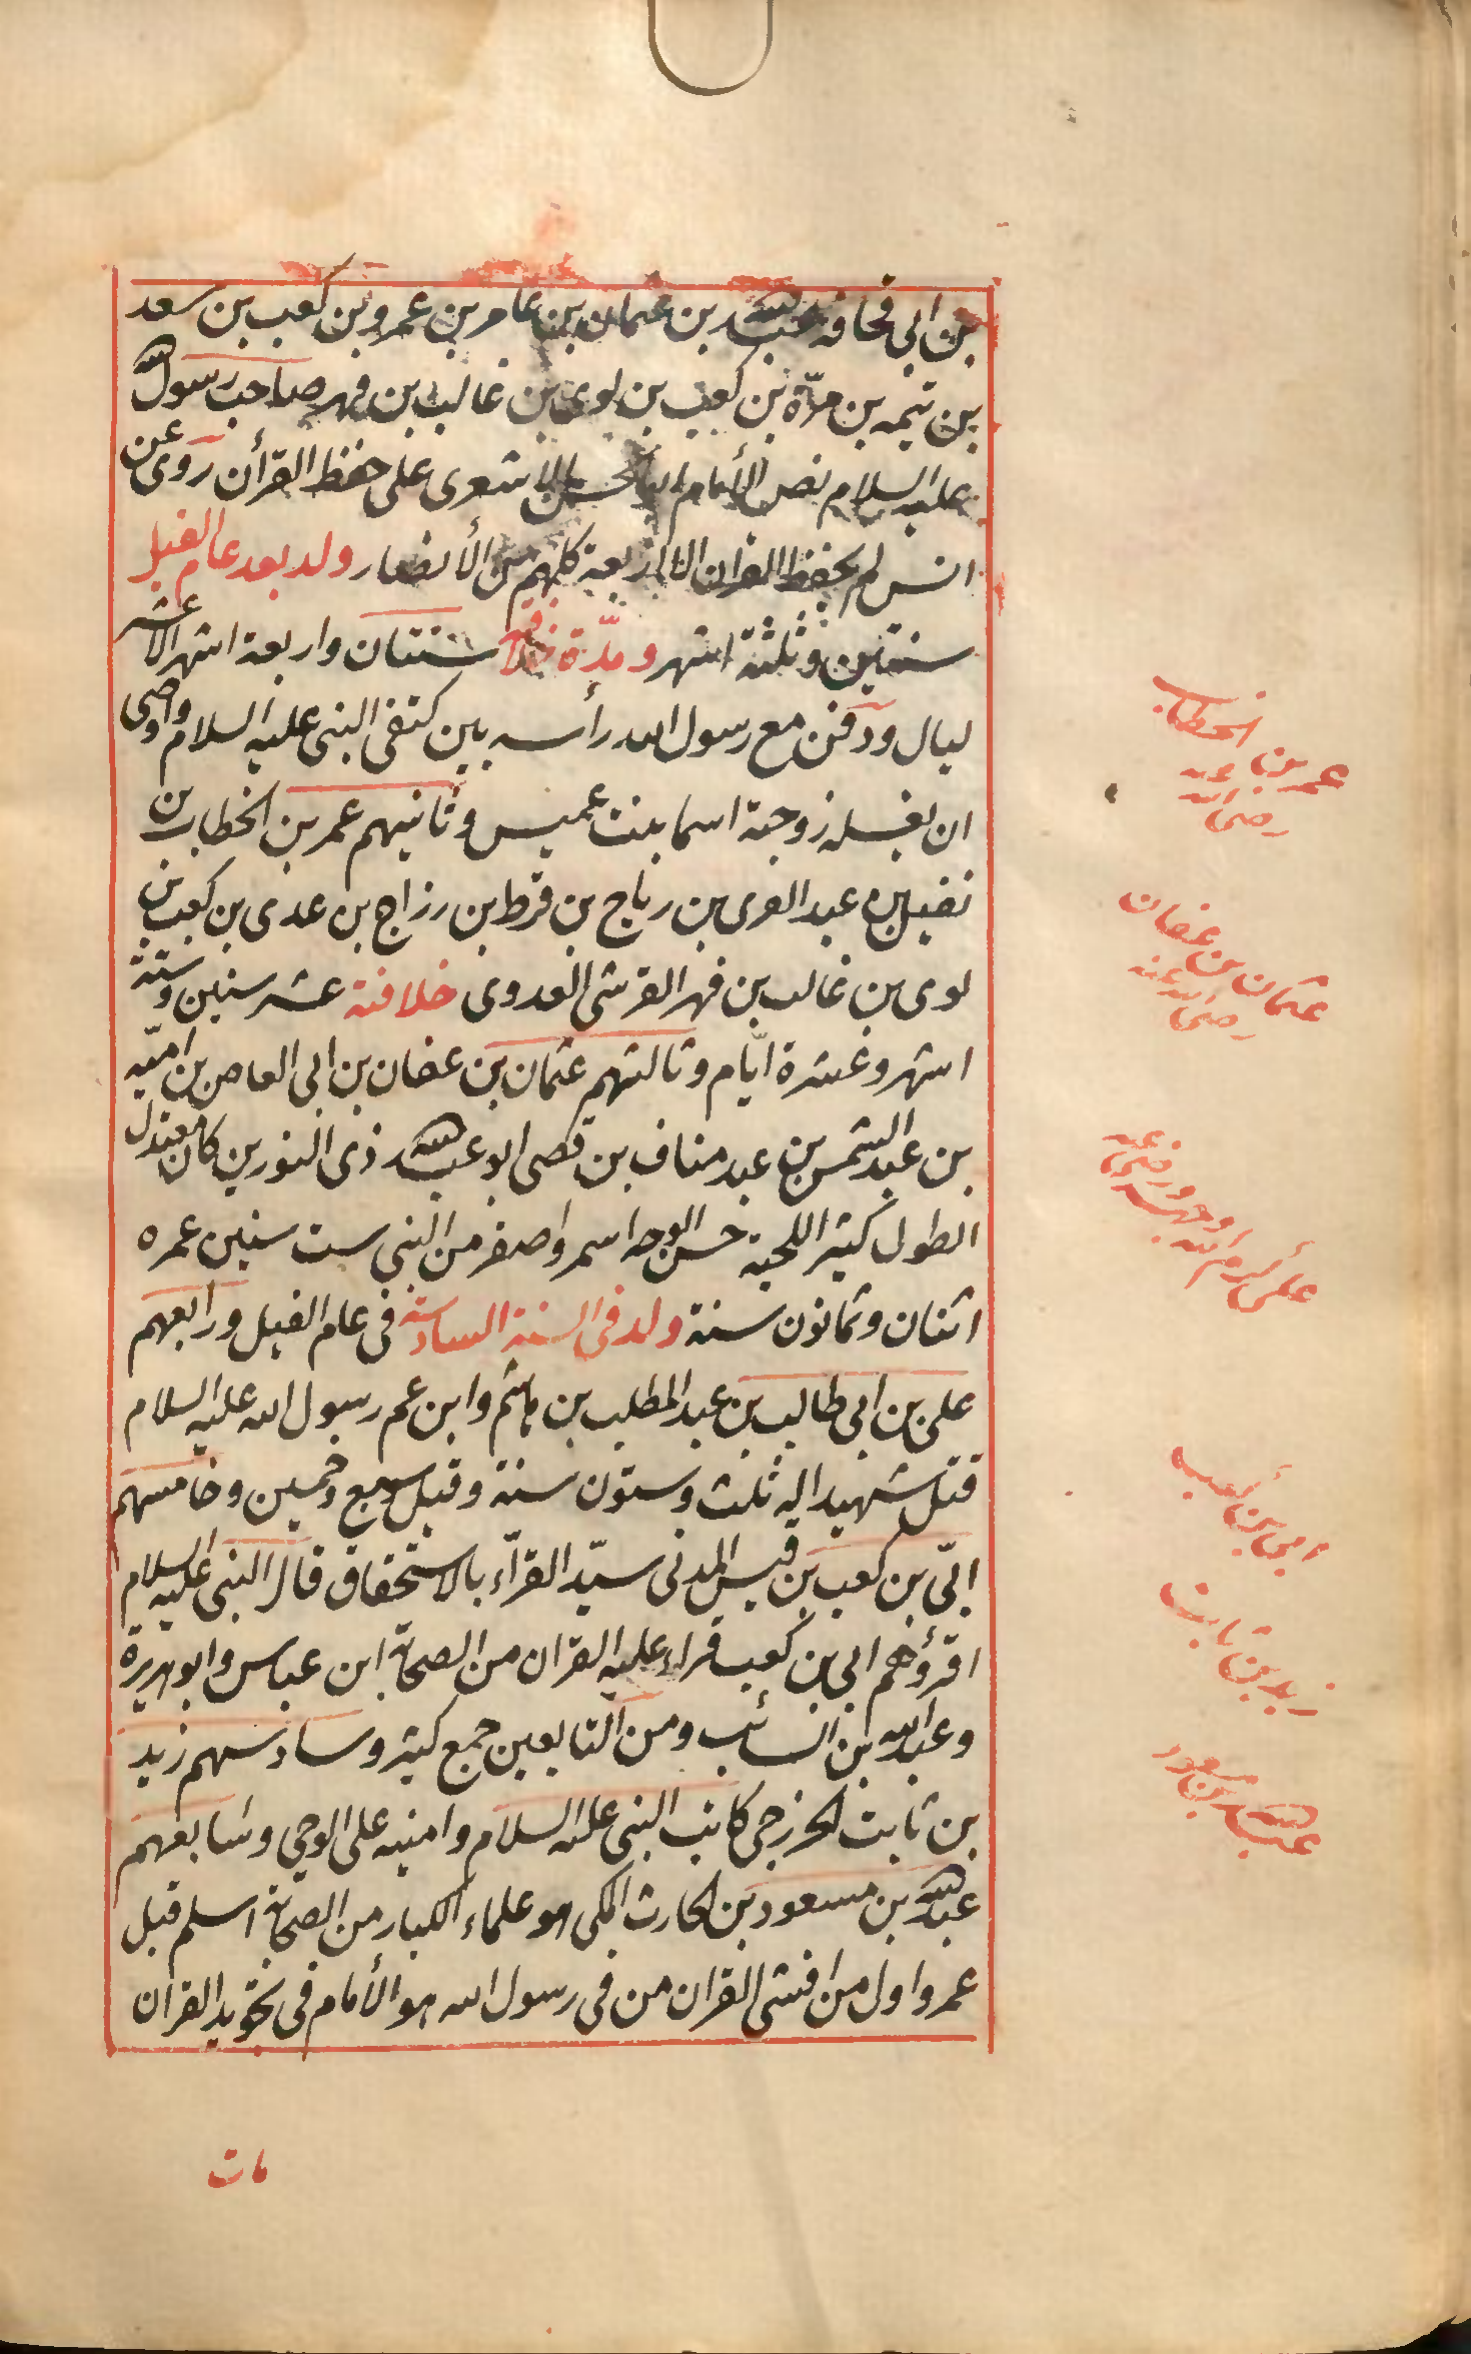 بن ابى قحافه عبد الله بن عثمان بن عامر بن عمرو بن كعب بن سعد
بن تيمه بن مرّة بن كعب بن لوى بن غالب بن فهر صاحب رسول الله
عليه السلام نص الأمام ابا الحسن الاشعرى على حفظ القرأن روى عن
انس لم يحفظ القران الا اربعة كلهم من الأنصار ولد بعد عام الفيل
سنتين وثلثة اشهر ومدّة خلافته سنتان واربعة اشهر الا عشر
ليال ودفن مع رسول الله رأسه بين كتفى النبى عليه السلام واوصى
ان يغسله زوجة اسما بنت عميس وثانيهم عمر بن الخطاب بن
نفيل بن عبد العزى بن رباح بن قرط بن رزاح بن عدى بن كعب بن
لوى بن غالب بن فهر القرشى العدوى خلافته عشر سنين وستة
اشهر وعشرة ايّام وثالثهم عثمان بن عفان بن ابى العاص بن اميّه
بن عبد الشمس بن عبد مناف بن قصى ابو عبد الله ذى النورين كان معتدل
الطول كثير اللحية حسن الوجه اسمر واصغر من النبى ست سنين عمره
اثنان وثمانون سنة ولد فى السنة السادسة فى عام الفيل ورابعهم
على بن ابى طالب بن عبد المطلب بن هاشم وابن عم رسول الله عليه السلام
قتل شهيدا له ثلث وستون سنة وقيل سبع وخمسين وخامسهم
ابىّ بن كعب بن قيس المدنى سيّد القرّاء بالاستحقاق قال النبى عليه السلام
اقرؤهم ابى بن كعب قراء عليه القران من الصحابة ابن عباس وابو هريرة
وعبد الله بن السائب ومن التابعين جمع كثير وسادسهم زيد
بن ثابت الخزرجى كاتب النبى عليه السلام وامينه على الوحى وسابعهم
عبد الله بن مسعود بن الحارث المكى هو علماء الكبار من الصحابة اسلم قبل
عمر واول من افشى القران من فى رسول الله هو الأمام فى تجويد القران
مات
عمر بن الخطاب
رضى الله عنه
عثمان بن عفان
رضى الله عنه
على كرم الله وجهه ورضى عنه
ابى بن كعب
زيد بن ثابت
عبد الله بن مسعود